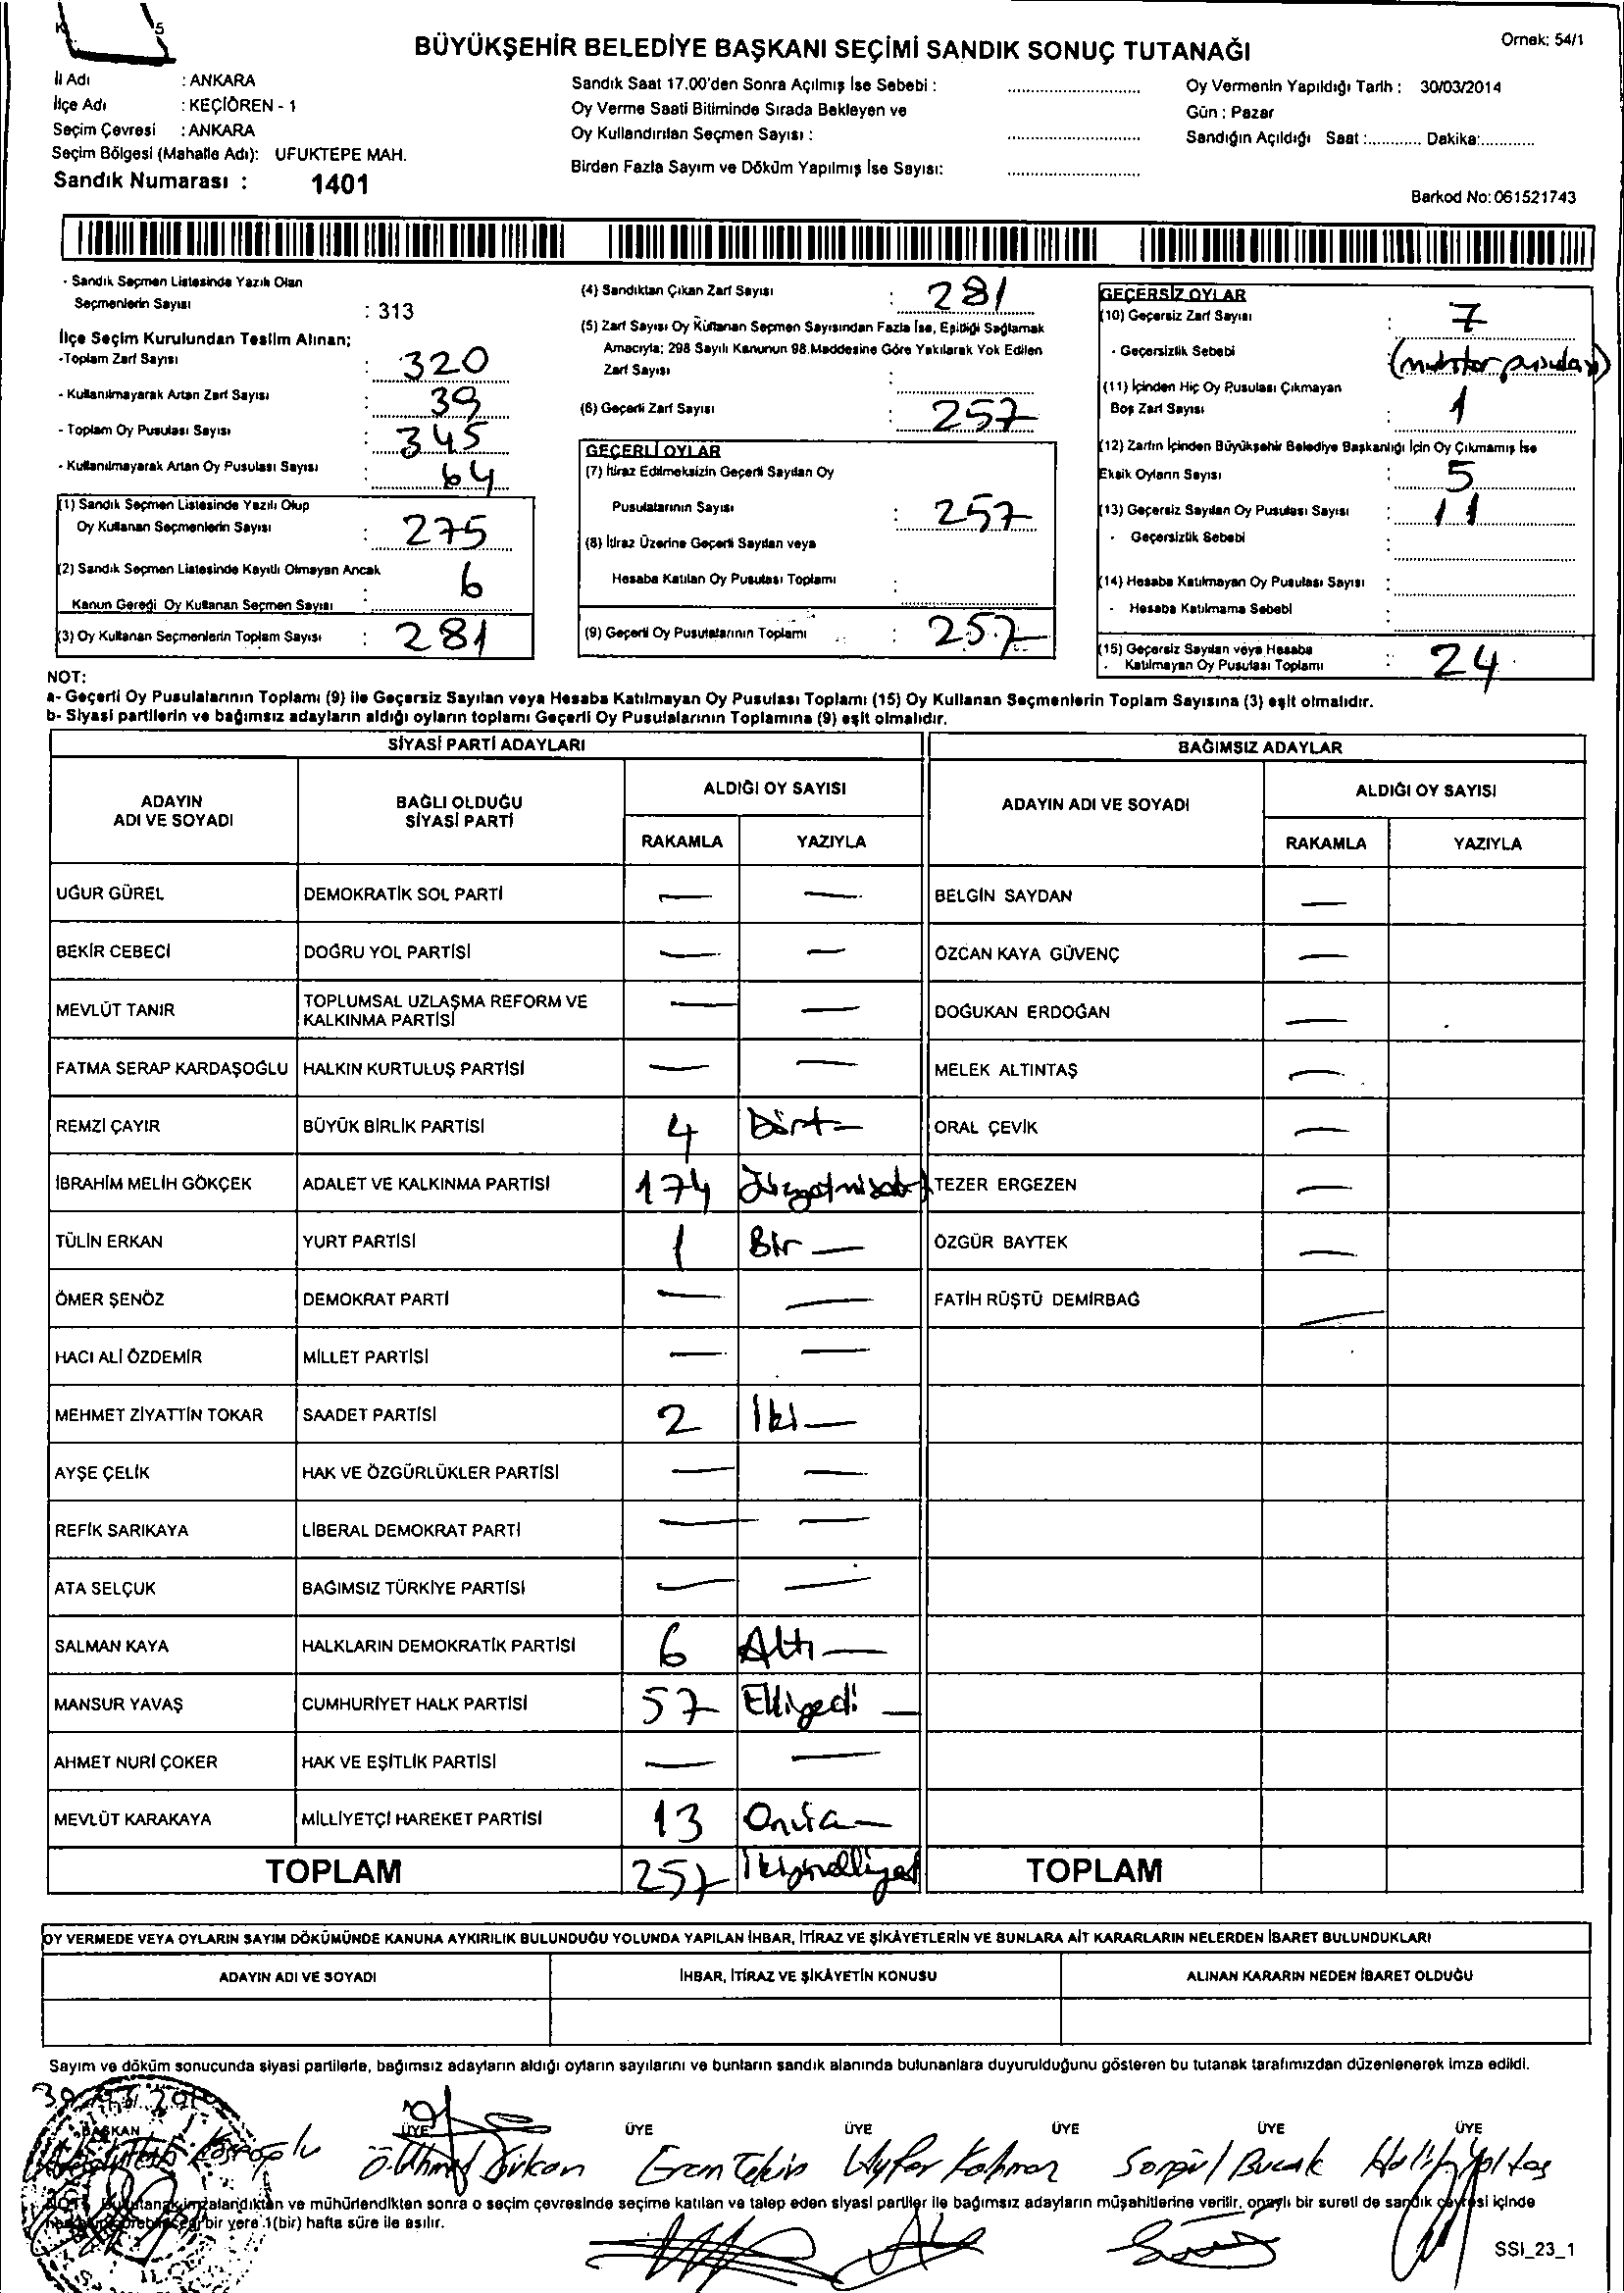 K 5
BÜYÜKŞEHİR BELEDİYE BAŞKANI SEÇİMİ SANDIK SONUÇ TUTANAĞI
Örnek: 54/1
İl Adı : ANKARA
İlçe Adı : KEÇİÖREN - 1
Seçim Çevresi : ANKARA
Seçim Bölgesi (Mahalle Adı): UFUKTEPE MAH.
Sandık Numarası : 1401
Sandık Saat 17.00'den Sonra Açılmış İse Sebebi :
Oy Verme Saati Bitiminde Sırada Bekleyen ve
Oy Kullandırılan Seçmen Sayısı :
Birden Fazla Sayım ve Döküm Yapılmış İse Sayısı:
Oy Vermenin Yapıldığı Tarih : 30/03/2014
Gün : Pazar
Sandığın Açıldığı Saat :............ Dakika:............
Barkod No: 061521743
- Sandık Seçmen Listesinde Yazılı Olan
Seçmenlerin Sayısı : 313
İlçe Seçim Kurulundan Teslim Alınan;
-Toplam Zarf Sayısı : 320
- Kullanılmayarak Artan Zarf Sayısı : 39
- Toplam Oy Pusulası Sayısı : 345
- Kullanılmayarak Artan Oy Pusulası Sayısı : 64
(1) Sandık Seçmen Listesinde Yazılı Olup
Oy Kullanan Seçmenlerin Sayısı : 275
(2) Sandık Seçmen Listesinde Kayıtlı Olmayan Ancak
Kanun Gereği Oy Kullanan Seçmen Sayısı : 6
(3) Oy Kullanan Seçmenlerin Toplam Sayısı : 281
(4) Sandıktan Çıkan Zarf Sayısı : 281
(5) Zarf Sayısı Oy Kullanan Seçmen Sayısından Fazla İse, Eşitliği Sağlamak
Amacıyla; 298 Sayılı Kanunun 98.Maddesine Göre Yakılarak Yok Edilen
Zarf Sayısı :
(6) Geçerli Zarf Sayısı : 257
GEÇERLİ OYLAR
(7) İtiraz Edilmeksizin Geçerli Sayılan Oy
Pusulalarının Sayısı : 257
(8) İtiraz Üzerine Geçerli Sayılan veya
Hesaba Katılan Oy Pusulası Toplamı :
(9) Geçerli Oy Pusulalarının Toplamı : 257
GEÇERSİZ OYLAR
(10) Geçersiz Zarf Sayısı : 7
- Geçersizlik Sebebi : (muhtar pusulası)
(11) İçinden Hiç Oy Pusulası Çıkmayan
Boş Zarf Sayısı : 1
(12) Zarfın İçinden Büyükşehir Belediye Başkanlığı İçin Oy Çıkmamış İse
Eksik Oyların Sayısı : 5
(13) Geçersiz Sayılan Oy Pusulası Sayısı : 11
- Geçersizlik Sebebi :
(14) Hesaba Katılmayan Oy Pusulası Sayısı :
- Hesaba Katılmama Sebebi :
(15) Geçersiz Sayılan veya Hesaba
- Katılmayan Oy Pusulası Toplamı : 24
NOT:
a- Geçerli Oy Pusulalarının Toplamı (9) ile Geçersiz Sayılan veya Hesaba Katılmayan Oy Pusulası Toplamı (15) Oy Kullanan Seçmenlerin Toplam Sayısına (3) eşit olmalıdır.
b- Siyasi partilerin ve bağımsız adayların aldığı oyların toplamı Geçerli Oy Pusulalarının Toplamına (9) eşit olmalıdır.
SİYASİ PARTİ ADAYLARI BAĞIMSIZ ADAYLAR
ADAYIN ADI VE SOYADI BAĞLI OLDUĞU SİYASİ PARTİ ALDIĞI OY SAYISI ADAYIN ADI VE SOYADI ALDIĞI OY SAYISI
RAKAMLA YAZIYLA RAKAMLA YAZIYLA
UĞUR GÜREL DEMOKRATİK SOL PARTİ — — BELGİN SAYDAN —
BEKİR CEBECİ DOĞRU YOL PARTİSİ — — ÖZCAN KAYA GÜVENÇ —
MEVLÜT TANIR TOPLUMSAL UZLAŞMA REFORM VE KALKINMA PARTİSİ — — DOĞUKAN ERDOĞAN —
FATMA SERAP KARDAŞOĞLU HALKIN KURTULUŞ PARTİSİ — — MELEK ALTINTAŞ —
REMZİ ÇAYIR BÜYÜK BİRLİK PARTİSİ 4 Dört — ORAL ÇEVİK —
İBRAHİM MELİH GÖKÇEK ADALET VE KALKINMA PARTİSİ 174 TEZER ERGEZEN —
TÜLİN ERKAN YURT PARTİSİ 1 Bir — ÖZGÜR BAYTEK —
ÖMER ŞENÖZ DEMOKRAT PARTİ — — FATİH RÜŞTÜ DEMİRBAĞ —
HACI ALİ ÖZDEMİR MİLLET PARTİSİ — —
MEHMET ZİYATTİN TOKAR SAADET PARTİSİ 2 İki —
AYŞE ÇELİK HAK VE ÖZGÜRLÜKLER PARTİSİ — —
REFİK SARIKAYA LİBERAL DEMOKRAT PARTİ — —
ATA SELÇUK BAĞIMSIZ TÜRKİYE PARTİSİ — —
SALMAN KAYA HALKLARIN DEMOKRATİK PARTİSİ 6 Altı —
MANSUR YAVAŞ CUMHURİYET HALK PARTİSİ 57 Elliyedi —
AHMET NURİ ÇOKER HAK VE EŞİTLİK PARTİSİ — —
MEVLÜT KARAKAYA MİLLİYETÇİ HAREKET PARTİSİ 13 Onüç —
TOPLAM 257 İkiyüzelliyedi TOPLAM
OY VERMEDE VEYA OYLARIN SAYIM DÖKÜMÜNDE KANUNA AYKIRILIK BULUNDUĞU YOLUNDA YAPILAN İHBAR, İTİRAZ VE ŞİKÂYETLERİN VE BUNLARA AİT KARARLARIN NELERDEN İBARET BULUNDUKLARI
ADAYIN ADI VE SOYADI İHBAR, İTİRAZ VE ŞİKÂYETİN KONUSU ALINAN KARARIN NEDEN İBARET OLDUĞU
Sayım ve döküm sonucunda siyasi partilerle, bağımsız adayların aldığı oyların sayılarını ve bunların sandık alanında bulunanlara duyurulduğunu gösteren bu tutanak tarafımızdan düzenlenerek imza edildi.
BAŞKAN ÜYE ÜYE ÜYE ÜYE ÜYE ÜYE
Eren Tekin Songül Bucak
NOT: Bu tutanak imzalandıktan ve mühürlendikten sonra o seçim çevresinde seçime katılan ve talep eden siyasi partiler ile bağımsız adayların müşahitlerine verilir, onaylı bir sureti de sandık çevresi içinde
bir yere 1(bir) hafta süre ile asılır.
SSI_23_1